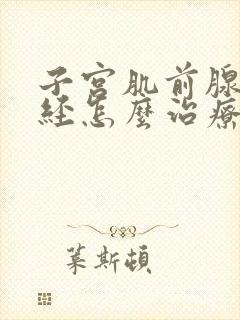 子宫肌前腺
经怎麼治療
葉斯頓